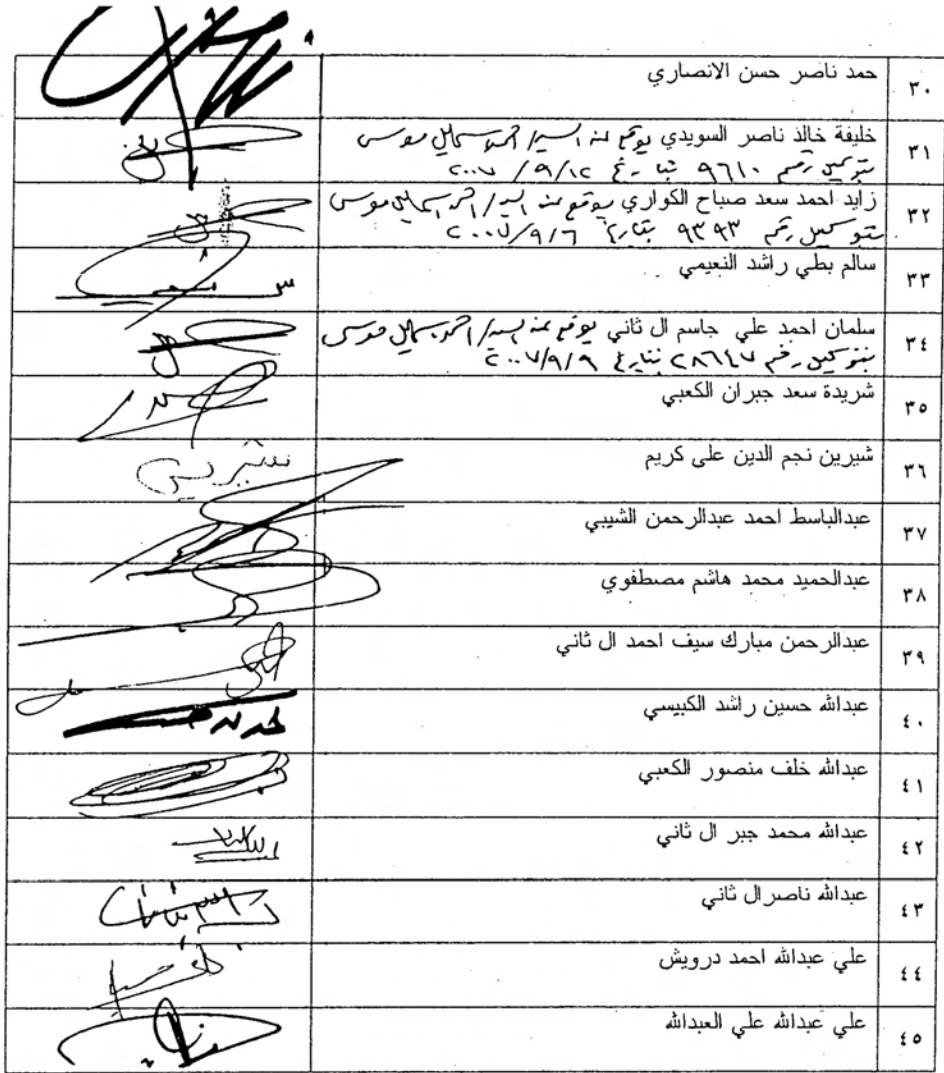 ٣٠ حمد ناصر حسن الانصاري
٣١ خليفة خالد ناصر السويدي يوقع عنه السيد/ احمد اسماعيل موسى
بتوكيل رقم ٩٦١٠ بتاريخ ٢٠٠٧/٩/١٢
٣٢ زايد احمد سعد صباح الكواري يوقع عنه السيد/ احمد اسماعيل موسى
بتوكيل رقم ٩٣٩٣ بتاريخ ٢٠٠٧/٩/٦
٣٣ سالم بطي راشد النعيمي
٣٤ سلمان احمد علي جاسم ال ثاني يوقع عنه السيد/ احمد اسماعيل موسى
بتوكيل رقم ٢٨٦٤٧ بتاريخ ٢٠٠٧/٩/٩
٣٥ شريدة سعد جبران الكعبي
٣٦ شيرين نجم الدين على كريم
٣٧ عبدالباسط احمد عبدالرحمن الشيبي
٣٨ عبدالحميد محمد هاشم مصطفوي
٣٩ عبدالرحمن مبارك سيف احمد ال ثاني
٤٠ عبدالله حسين راشد الكبيسي
٤١ عبدالله خلف منصور الكعبي
٤٢ عبدالله محمد جبر ال ثاني
٤٣ عبدالله ناصرال ثاني
٤٤ علي عبدالله احمد درويش
٤٥ علي عبدالله علي العبدالله